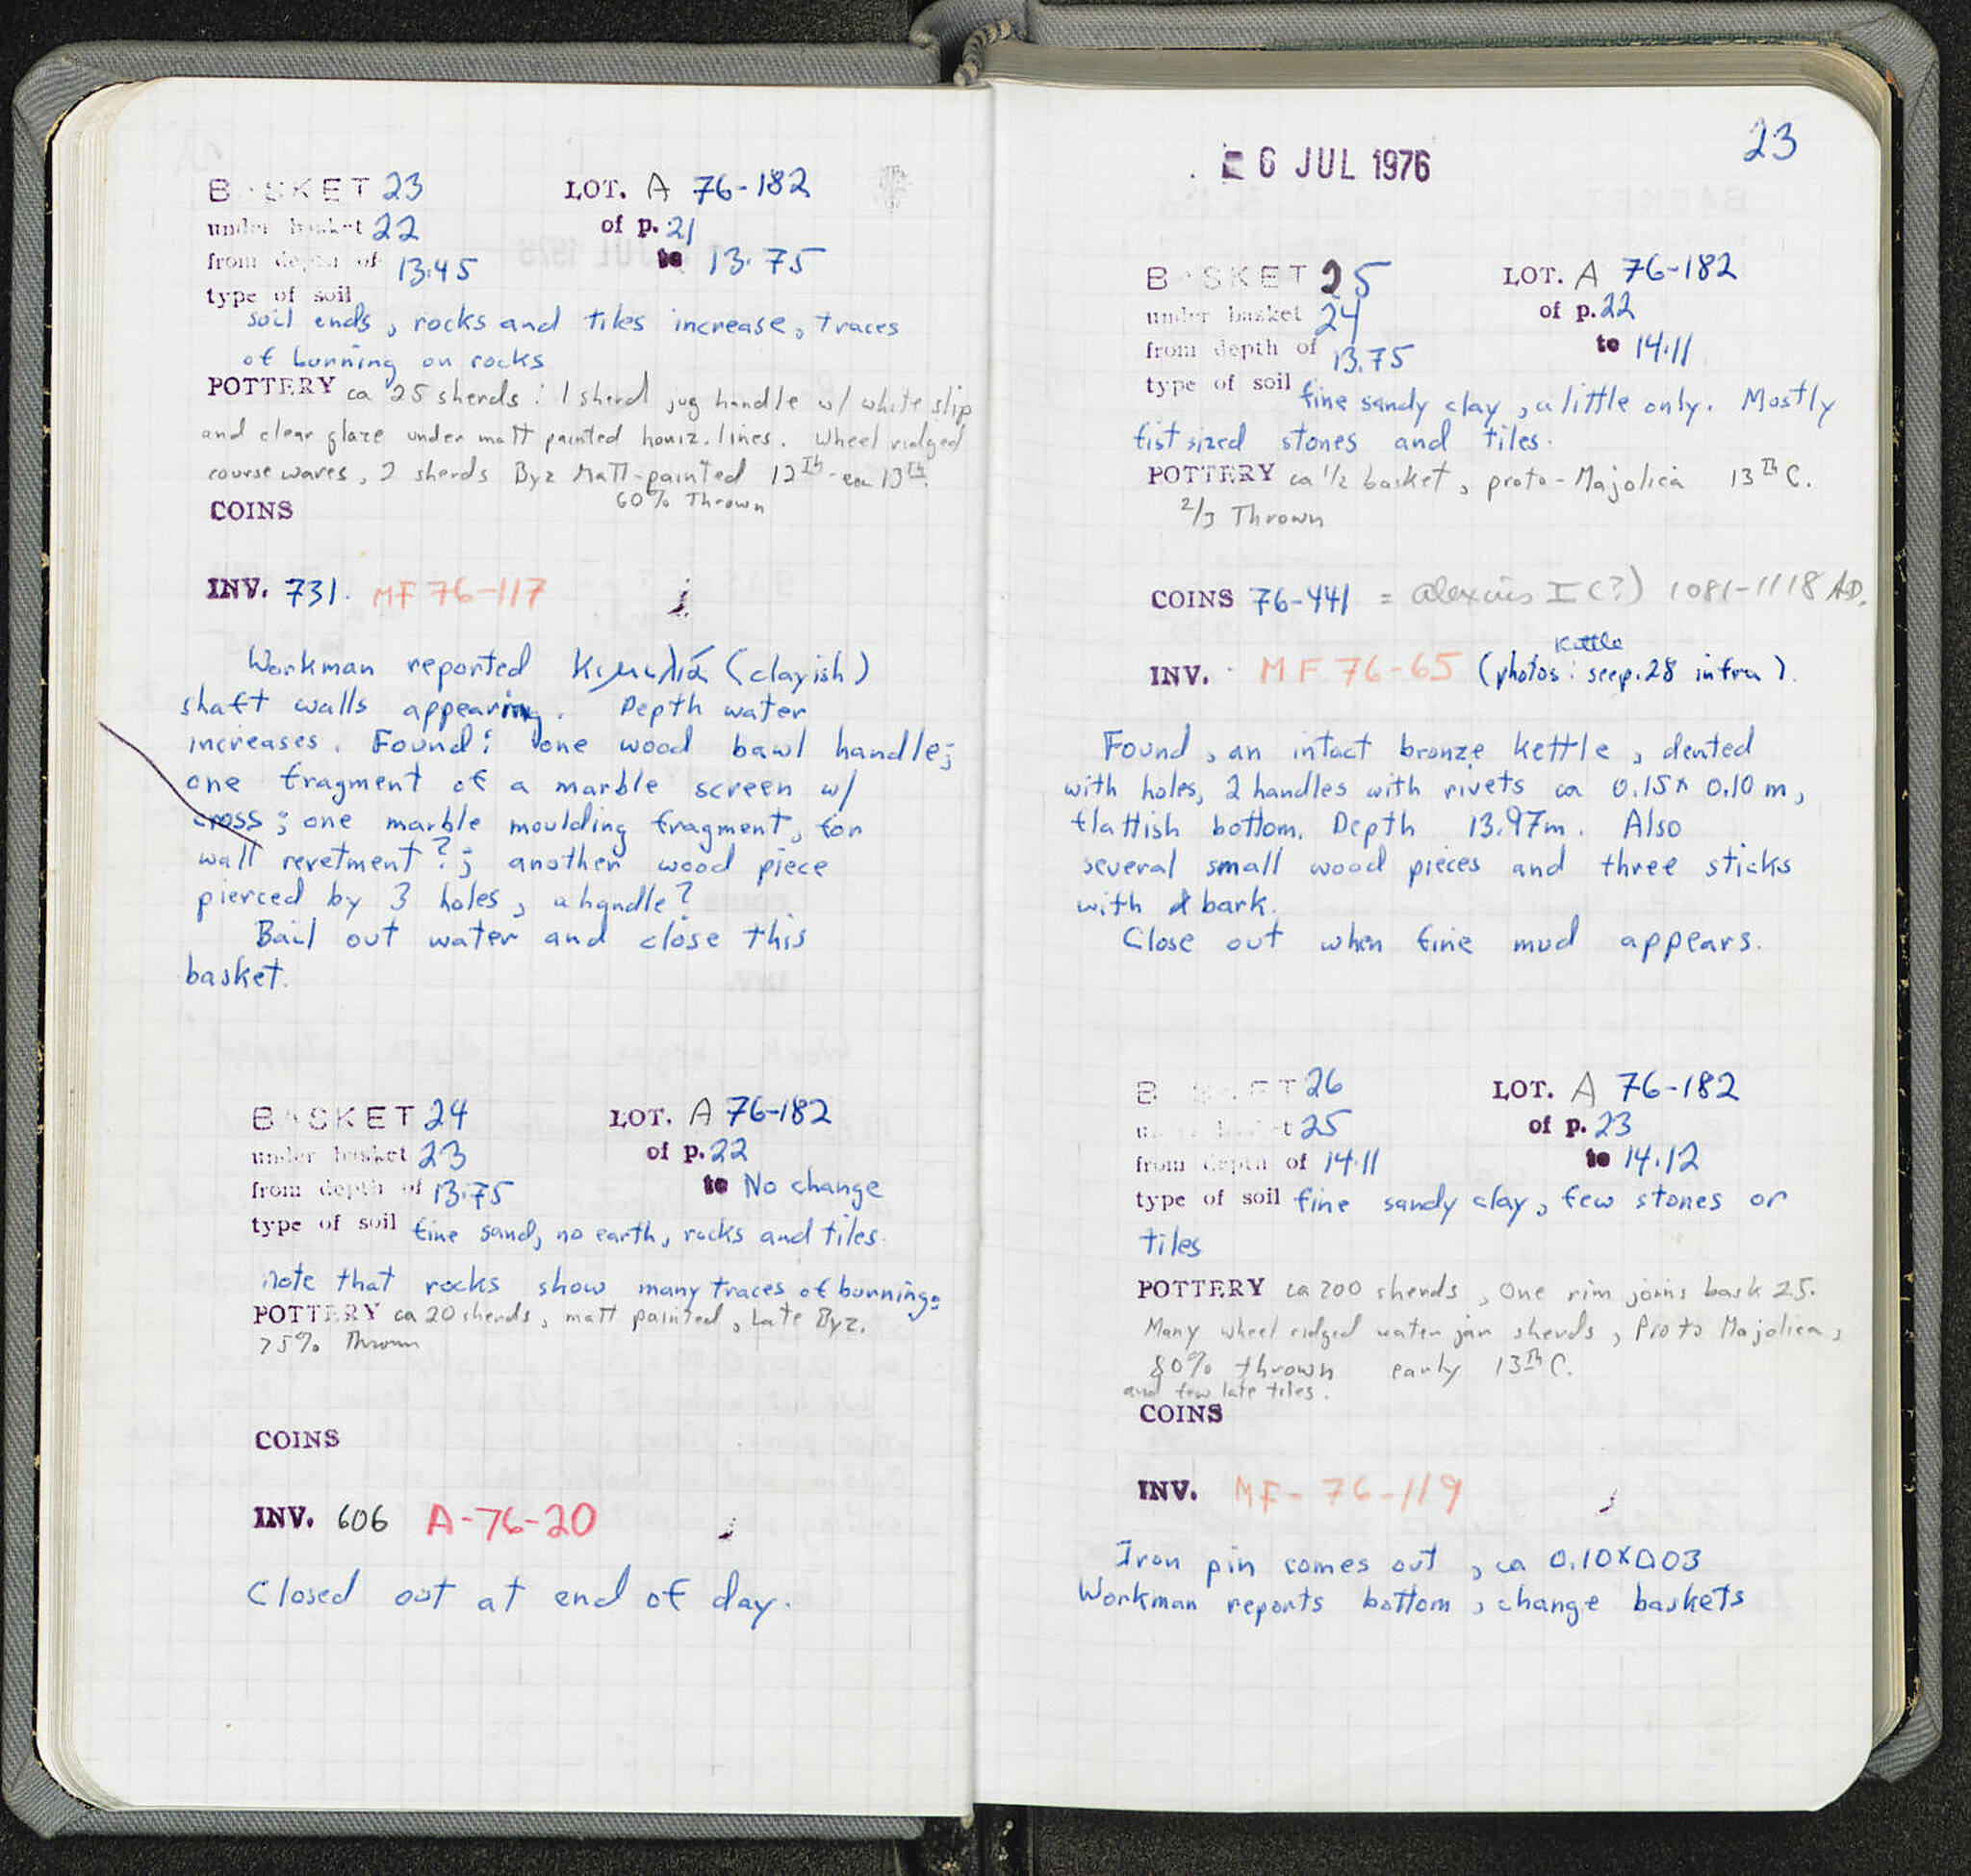 BASKET 23 LOT. A 76-182
under basket 22 of p. 21
from depth of 13.45 to 13.75
type of soil
soil ends, rocks and tiles increase, traces
of burning on rocks
POTTERY ca 25 sherds: 1 sherd jug handle w/ white slip
and clear glaze under matt painted horiz. lines. Wheel ridged
course wares, 2 sherds Byz Matt-painted 12th - ea 13th.
60% Thrown
COINS
INV. 731. MF 76-117
Workman reported Κιμιλιά (clayish)
shaft walls appearing. Depth water
increases. Found: one wood bawl handle;
one fragment of a marble screen w/
cross; one marble moulding fragment, for
wall revetment?; another wood piece
pierced by 3 holes, a handle?
Bail out water and close this
basket.
BASKET 24 LOT. A 76-182
under basket 23 of p. 22
from depth of 13.75 to No change
type of soil fine sand, no earth, rocks and tiles.
note that rocks show many traces of burning.
POTTERY ca 20 sherds, matt painted, Late Byz.
75% Thrown
COINS
INV. 606 A-76-20
Closed out at end of day.
23
6 JUL 1976
BASKET 25 LOT. A 76-182
under basket 24 of p. 22
from depth of 13.75 to 14.11
type of soil fine sandy clay, a little only. Mostly
fist sized stones and tiles.
POTTERY ca 1/2 basket, proto-Majolica 13th C.
2/3 Thrown
COINS 76-441 = Alexius I (?) 1081-1118 AD.
Kettle
INV. MF 76-65 (photos: see p. 28 infra).
Found, an intact bronze kettle, dented
with holes, 2 handles with rivets ca 0.15 x 0.10 m,
flattish bottom. Depth 13.97m. Also
several small wood pieces and three sticks
with bark.
Close out when fine mud appears.
BASKET 26 LOT. A 76-182
under basket 25 of p. 23
from depth of 14.11 to 14.12
type of soil fine sandy clay, few stones or
tiles
POTTERY ca 200 sherds, One rim joins bask 25.
Many wheel ridged water jar sherds, Proto Majolica,
80% thrown early 13th C.
and few late tiles.
COINS
INV. MF-76-119
Iron pin comes out, ca 0.10 x 0.03
Workman reports bottom, change baskets